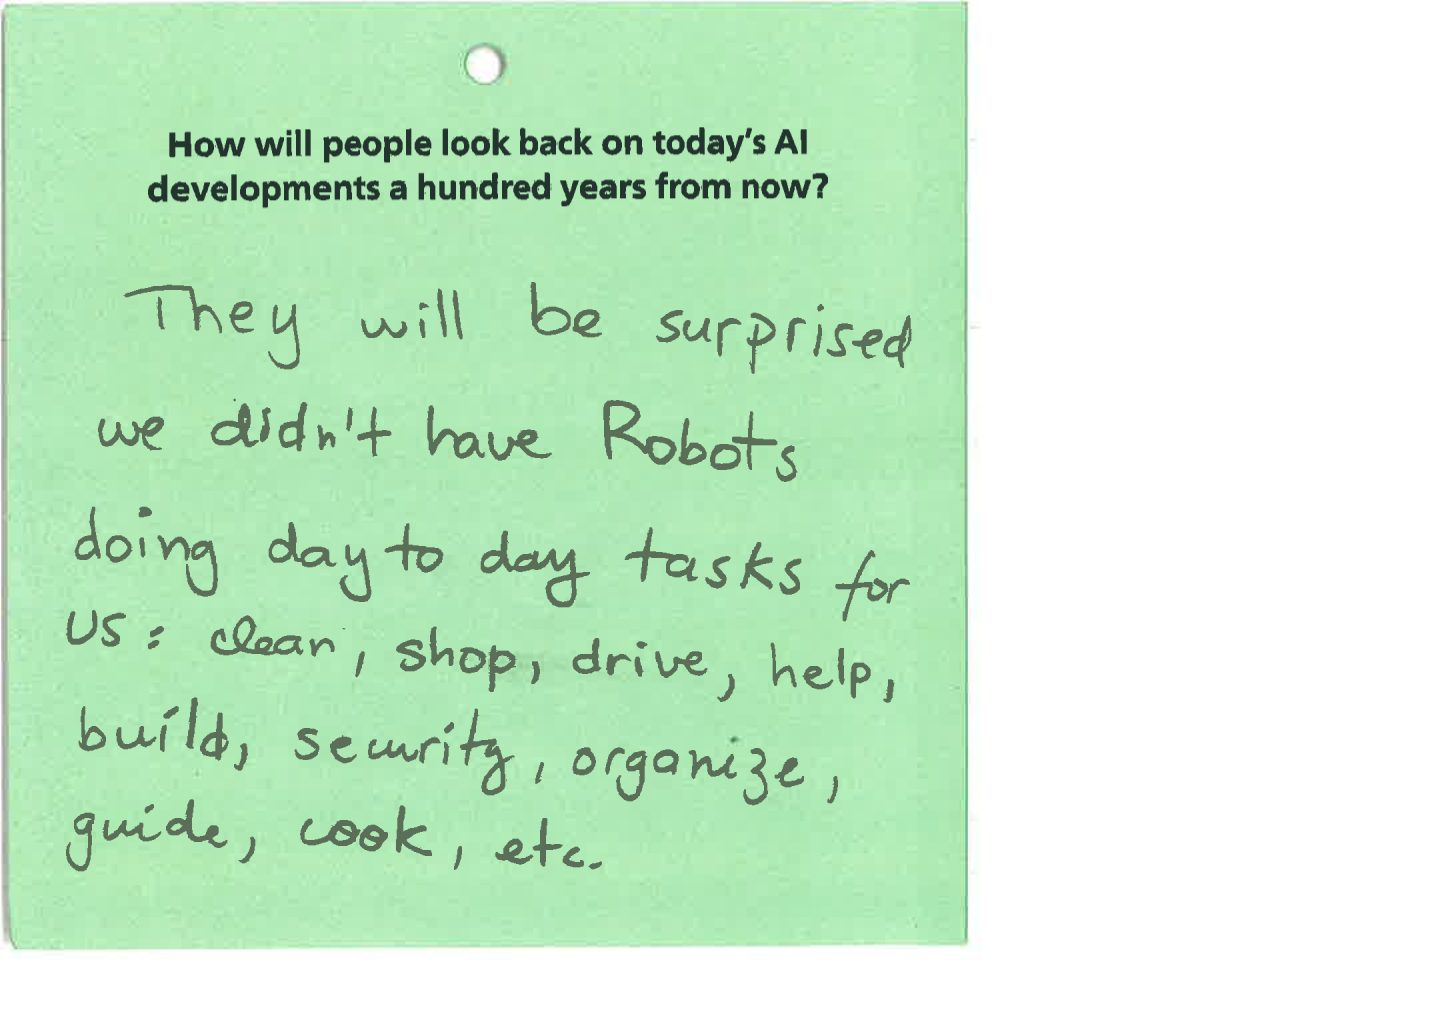 How will people look back on today's AI
developments a hundred years from now?
They will be surprised
we didn't have Robots
doing day to day tasks for
us: clean, shop, drive, help,
build, security, organize,
guide, cook, etc.